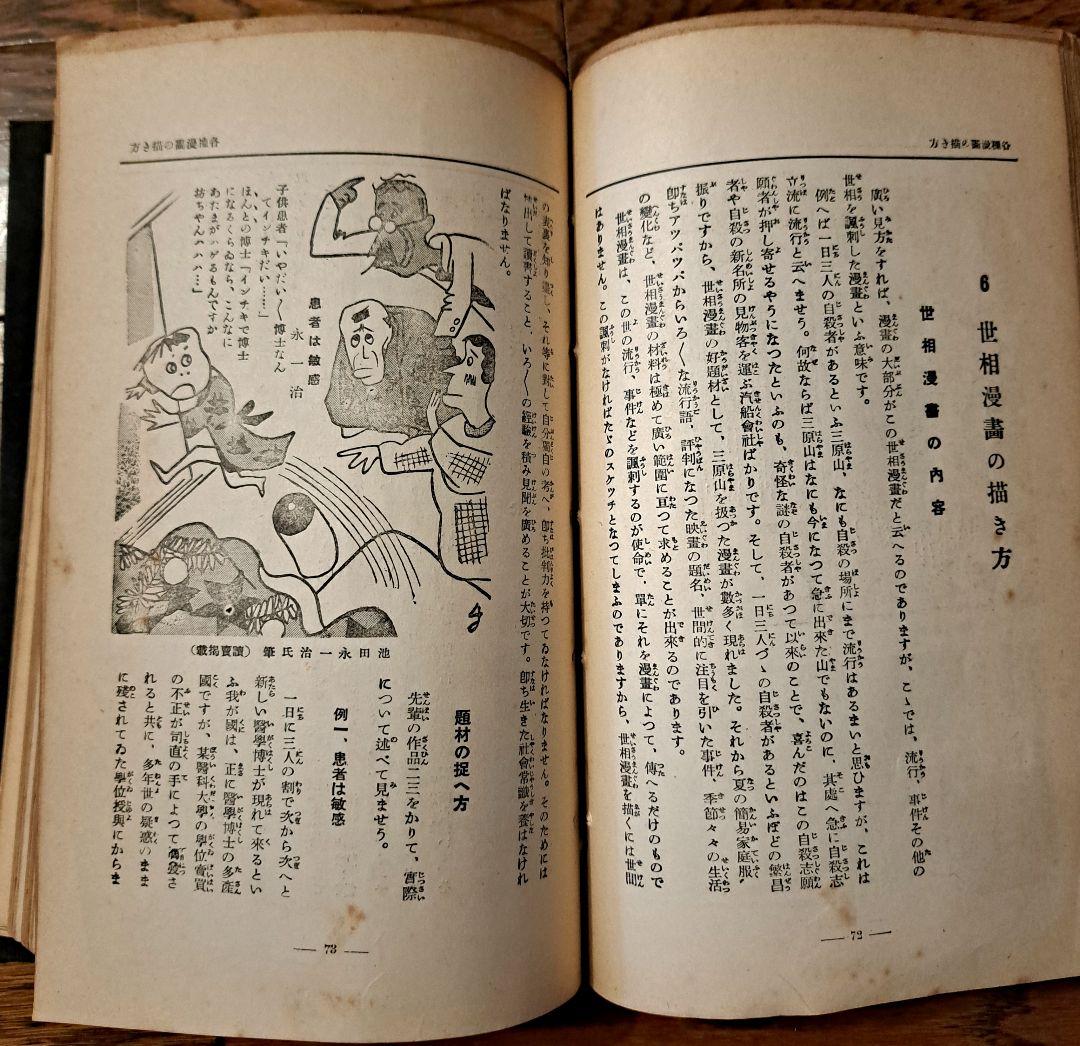 各種漫畫の描き方
6 世相漫畫の描き方
世相漫畫の内容
廣い見方をすれば、漫畫の大部分がこの世相漫畫だと云へるのでありますが、こゝでは、流行、事件その他の
世相を諷刺した漫畫といふ意味です。
例へば一日三人の自殺者があるといふ三原山、なにも自殺の場所にまで流行はあるまいと思ひますが、これは
立流に流行と云へませう。何故ならば三原山はなにも今になつて急に出來た山でもないのに、其處へ急に自殺志
願者が押し寄せるやうになつたといふのも、奇怪な謎の自殺者があつて以來のことで、喜んだのはこの自殺志願
者や自殺の新名所の見物客を運ぶ汽船會社ばかりです。そして、一日三人づゝの自殺者があるといふほどの繁昌
振りですから、世相漫畫の好題材として、三原山を扱つた漫畫が數多く現れました。それから夏の簡易家庭服、
卽ちアツパツパからいろ〱な流行語、評判になつた映畫の題名、世間的に注目を引いた事件、季節々々の生活
の變化など、世相漫畫の材料は極めて廣い範圍に亙つて求めることが出來るのであります。
世相漫畫は、この世の流行、事件などを諷刺するのが使命で、單にそれを漫畫によつて、傳へるだけのもので
はありません。この諷刺がなければたゞのスケッチとなつてしまふのでありますから、世相漫畫を描くには世間
— 72 —
各種漫畫の描き方
の裏書を知り盡し、それ等に對して自分獨自の考へ、卽ち批判力を持つてゐなければなりません。そのためには
出して讀書すること、いろ〱の經驗を積み見聞を廣めることが大切です。卽ち生きた社會常識を養はなけれ
ばなりません。
患者は敏感
永一治
子供患者「いやだい〱博士なん
てインチキだい……」
ほんとの博士「インチキで博士
になるくらゐなら、こんなに
あたまがハゲるもんですか
坊ちやんハハハ…」
池田永一治氏筆(讀賣掲載)
題材の捉へ方
先輩の作品二三をかりて、實際
について述べて見ませう。
例一、患者は敏感
一日に三人の割で次から次へと
新しい醫學博士が現れて來るとい
ふ我が國は、正に醫學博士の多產
國ですが、某醫科大學の學位賣買
の不正が司直の手によつて摘發さ
れると共に、多年世の疑惑のまま
に殘されてゐた學位授與にからま
— 73 —